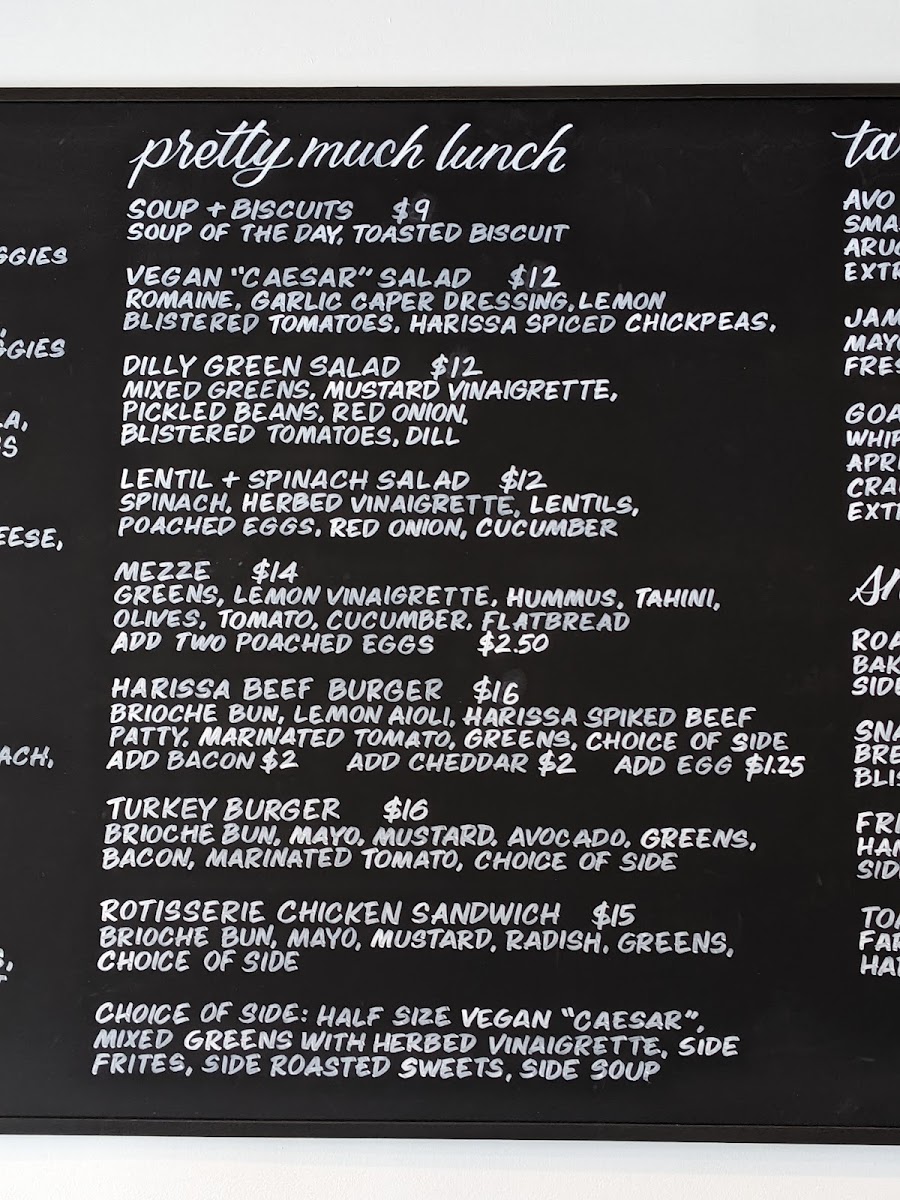 pretty much lunch
SOUP + BISCUITS $9
SOUP OF THE DAY, TOASTED BISCUIT
VEGAN "CAESAR" SALAD $12
ROMAINE, GARLIC CAPER DRESSING, LEMON
BLISTERED TOMATOES, HARISSA SPICED CHICKPEAS.
DILLY GREEN SALAD $12
MIXED GREENS, MUSTARD VINAIGRETTE,
PICKLED BEANS, RED ONION,
BLISTERED TOMATOES, DILL
LENTIL + SPINACH SALAD $12
SPINACH, HERBED VINAIGRETTE, LENTILS,
POACHED EGGS, RED ONION, CUCUMBER
MEZZE $14
GREENS, LEMON VINAIGRETTE, HUMMUS, TAHINI,
OLIVES, TOMATO, CUCUMBER, FLATBREAD
ADD TWO POACHED EGGS $2.50
HARISSA BEEF BURGER $16
BRIOCHE BUN, LEMON AIOLI, HARISSA SPIKED BEEF
PATTY, MARINATED TOMATO, GREENS, CHOICE OF SIDE
ADD BACON $2 ADD CHEDDAR $2 ADD EGG $1.25
TURKEY BURGER $16
BRIOCHE BUN, MAYO, MUSTARD, AVOCADO, GREENS,
BACON, MARINATED TOMATO, CHOICE OF SIDE
ROTISSERIE CHICKEN SANDWICH $15
BRIOCHE BUN, MAYO, MUSTARD, RADISH, GREENS,
CHOICE OF SIDE
CHOICE OF SIDE: HALF SIZE VEGAN "CAESAR",
MIXED GREENS WITH HERBED VINAIGRETTE, SIDE
FRITES, SIDE ROASTED SWEETS, SIDE SOUP
AVO